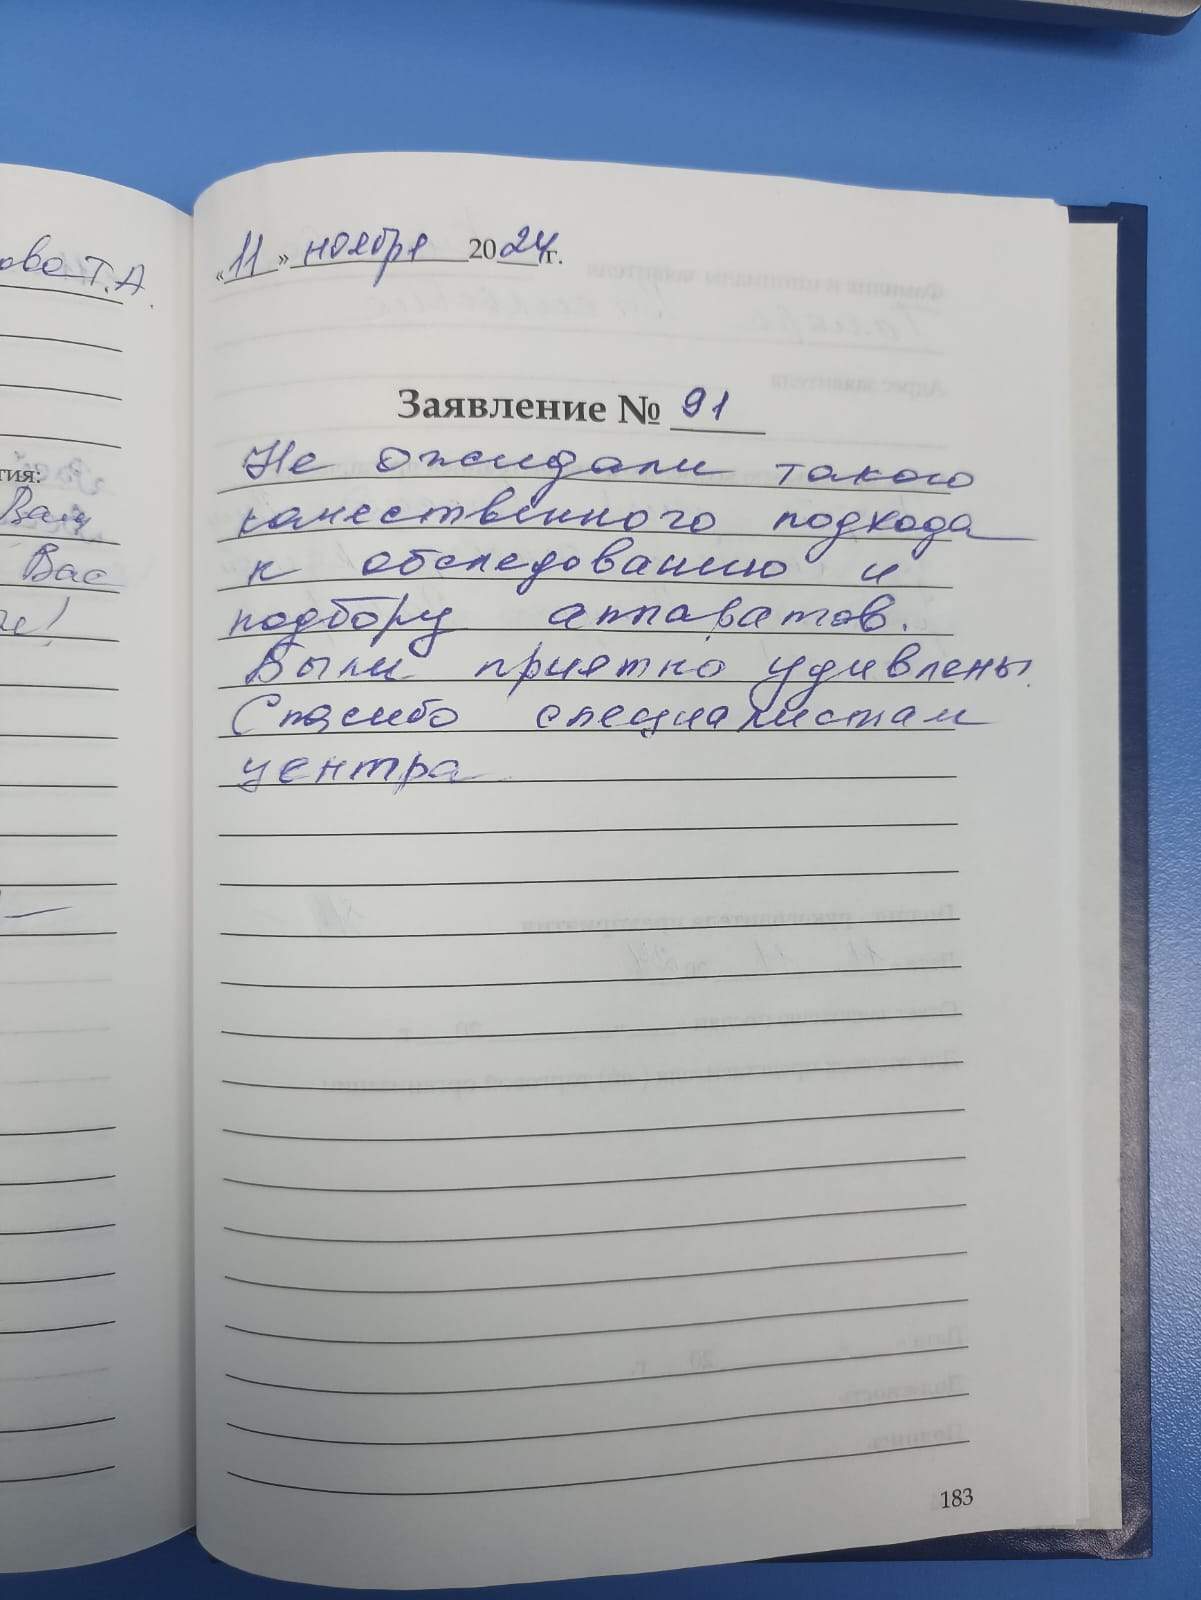 ова Т.А.
тия:
Вам
Вас
«11» ноября 2024г.
Заявление № 91
Не ожидали такого
качественного подхода
к обследованию и
подбору аппаратов.
Были приятно удивлены.
Спасибо специалистам
центра
183